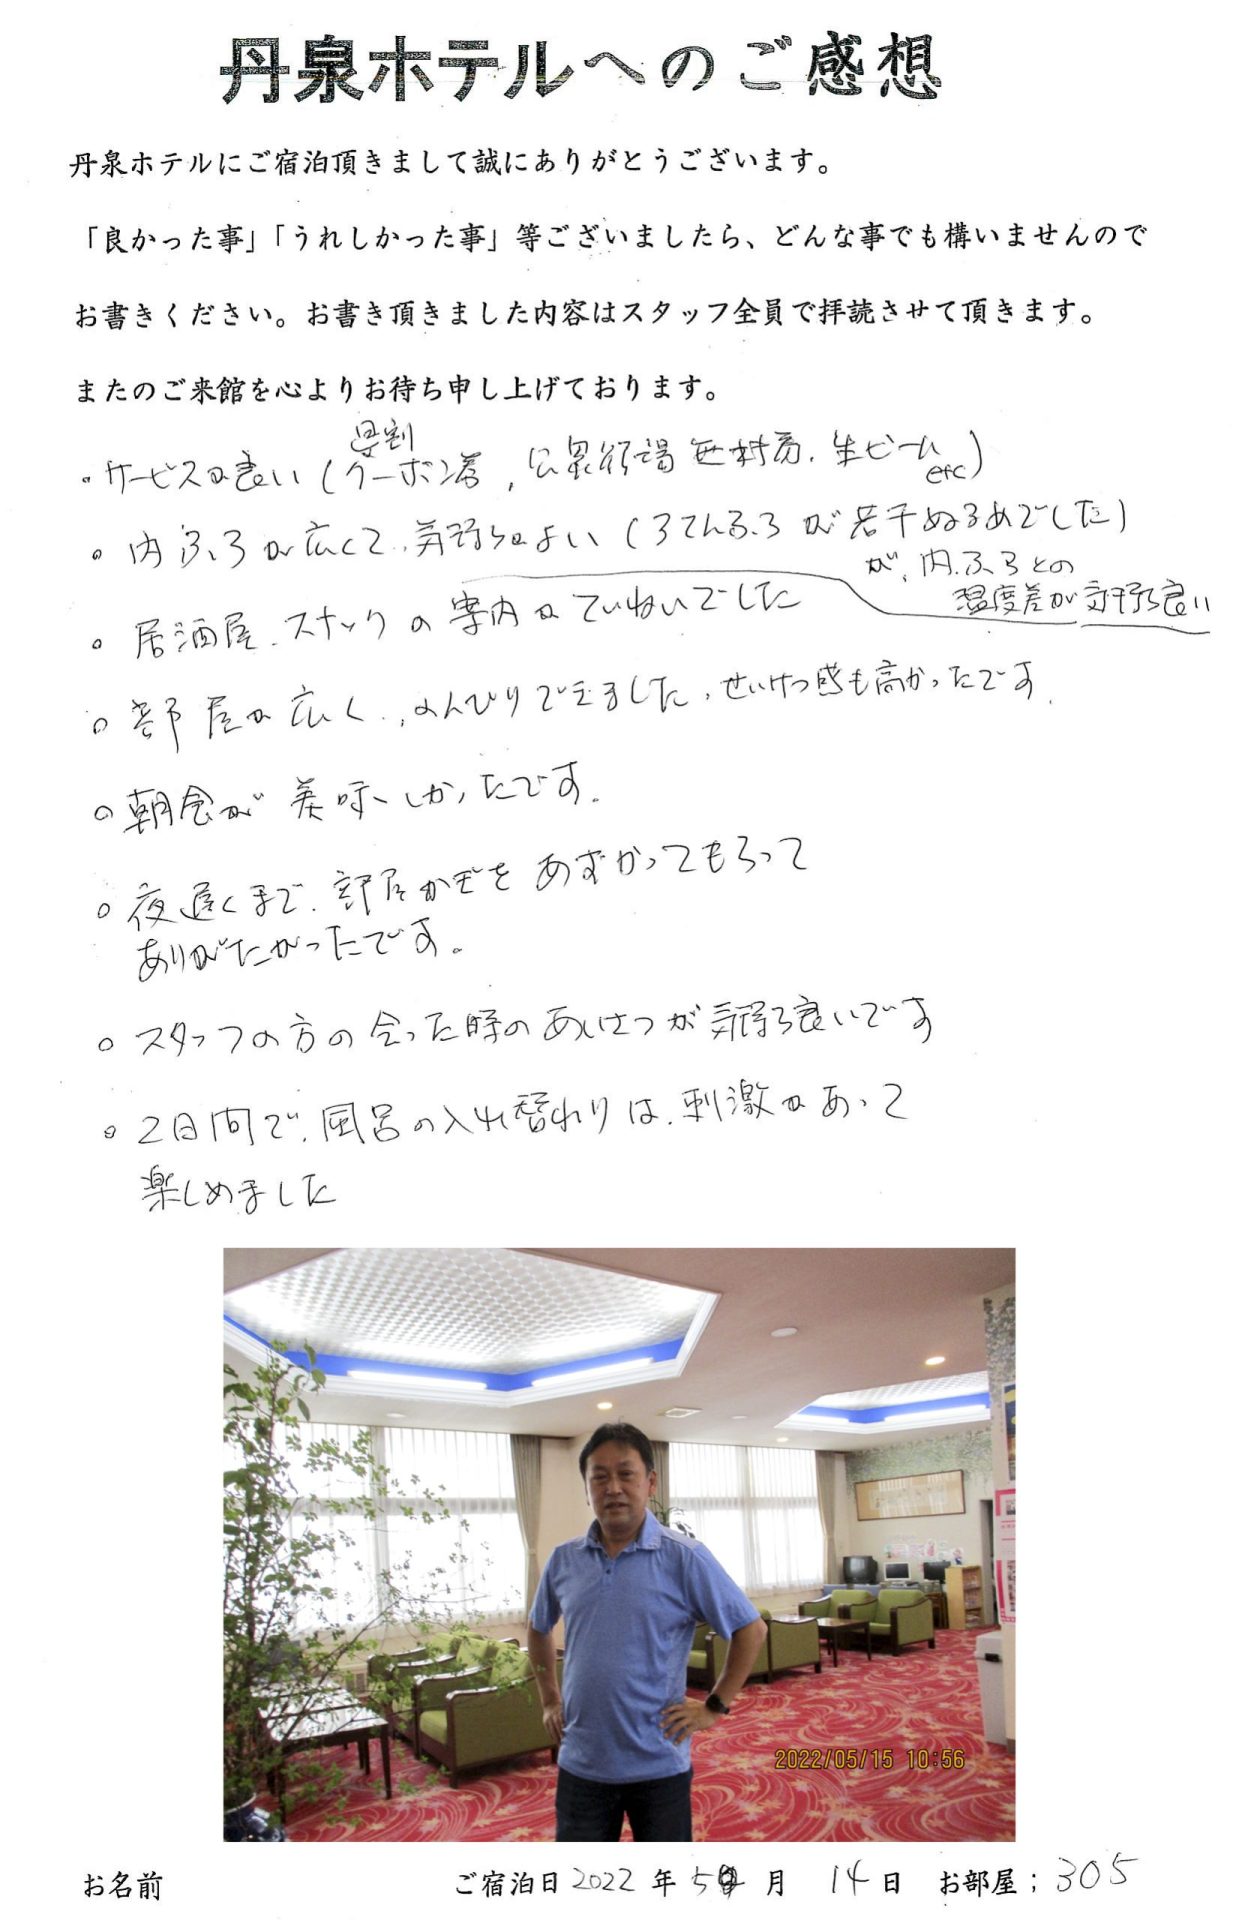 丹泉ホテルへのご感想
丹泉ホテルにご宿泊頂きまして誠にありがとうございます。
「良かった事」「うれしかった事」等ございましたら、どんな事でも構いませんので
お書きください。お書き頂きました内容はスタッフ全員で拝読させて頂きます。
またのご来館を心よりお待ち申し上げております。
県割
・サービスが良い(クーポン券, 公衆浴場無料券, 生ビール
etc)
。内ふろが広くて、気持ちがよい(ろてんふろが若干ぬるめでした)
が、内ふろとの
温度差が気持ち良い
。居酒屋、スナックの案内がていねいでした
。部屋が広く、のんびりできました、せいけつ感も高かったです.
。朝食が美味しかったです.
。夜遅くまで、部屋かぎをあずかってもらって
ありがたかったです。
。スタッフの方の会った時のあいさつが気持ち良いです
。2日間で、風呂の入れ替わりは、刺激があって
楽しめました
2022/05/15 10:56
お名前 ご宿泊日 2022 年 5 月 14 日 お部屋; 305